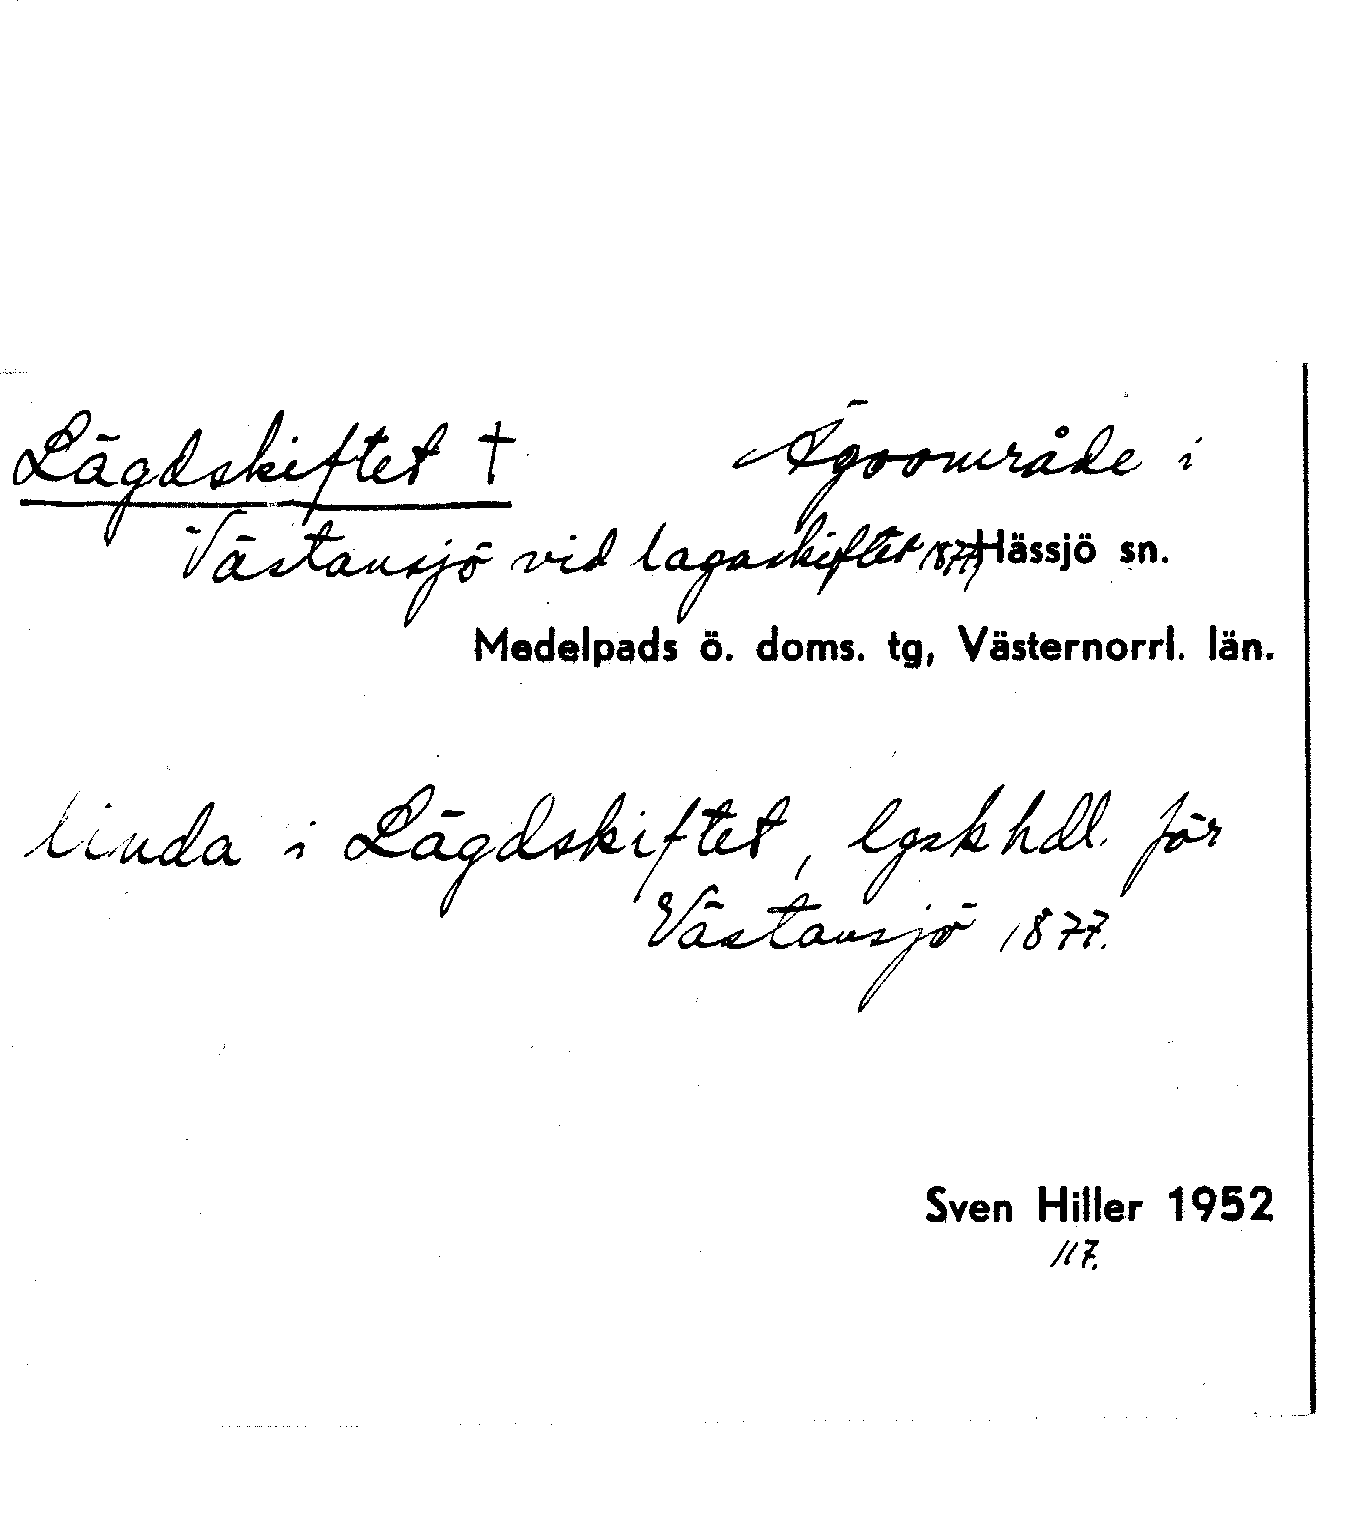 Lägdskiftet † Ägoområde i
Västansjö vid lagaskiftet 1877, Hässjö sn.
Medelpads ö. doms. tg, Västernorrl. län.
linda i Lägdskiftet, lgskhdl. för
Västansjö 1877.
Sven Hiller 1952
117.